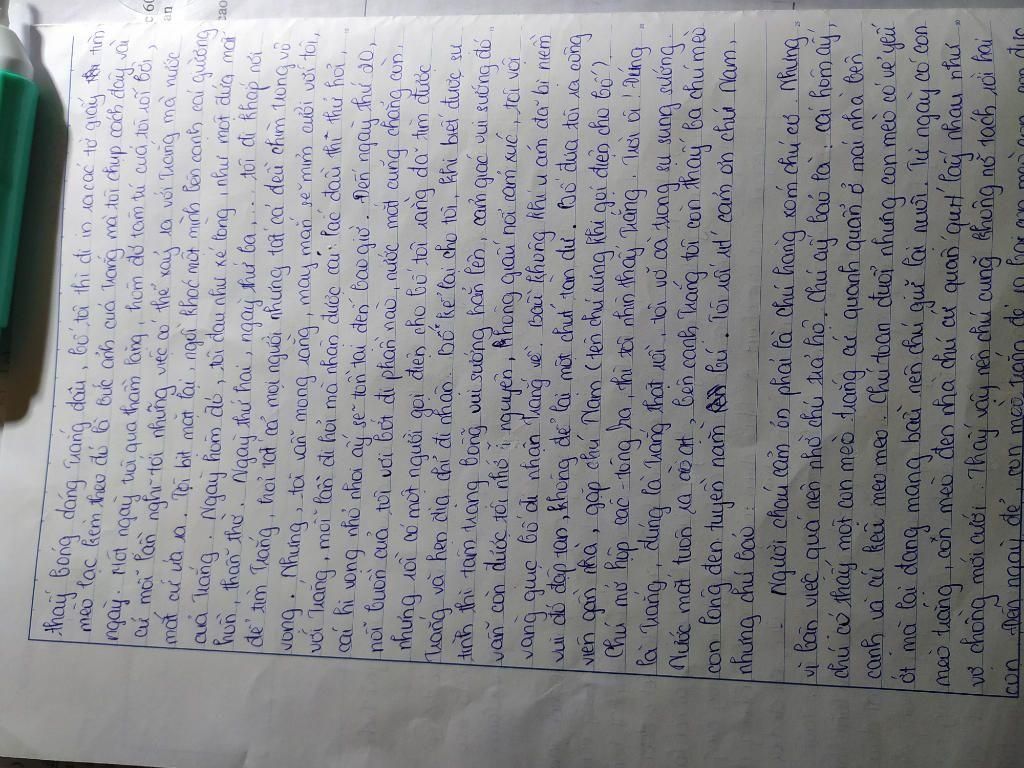 thấy bóng dáng Trắng đâu, bố tôi thì đi in ra các tờ giấy tìm
mèo lạc kèm theo đó là bức ảnh của Trắng mà tôi chụp cách đây vài
ngày. Một ngày trôi qua thầm lặng, hôm đó tâm trí của tôi rối bời,
cứ mỗi lần nghĩ tới những việc có thể xảy ra với Trắng mà nước
mắt cứ ứa ra. Tôi bịt mắt lại, ngồi khóc một mình bên cạnh cái giường
của Trắng. Ngay hôm đó, tôi đau như xé lòng, như một đứa mất
hồn, thẫn thờ. Ngày thứ hai, ngày thứ ba,... tôi đi khắp nơi
để tìm Trắng, hỏi tất cả mọi người nhưng tất cả đều chìm trong vô
vọng. Nhưng, tôi vẫn mong rằng, may mắn sẽ mỉm cười với tôi,
với Trắng, mỗi lần đi hỏi mà nhận được cái lắc đầu thì thử hỏi
cái hi vọng nhỏ nhoi ấy sẽ tồn tại đến bao giờ. Đến ngày thứ 20,
nỗi buồn của tôi vơi bớt đi phần nào, nước mắt cũng chẳng còn,
nhưng rồi có một người gọi đến cho bố tôi rằng đã tìm được
Trắng và hẹn địa chỉ đi nhận. Bố kể lại cho tôi, khi biết được sự
tình thì tâm trạng bỗng vui sướng hẳn lên, cảm giác vui sướng đó
vẫn còn được tôi giữ nguyên, không giấu nổi cảm xúc, tôi vội
vàng giục bố đi nhận Trắng về. Bầu không khí u ám đã bị niềm
vui đó dập tan, không để lại một chút tàn dư. Bố đưa tôi ra công
viên gần nhà, gặp chú Nam (tên chú từng khi gọi điện cho bố)
Chú mở hộp các-tông ra, thì tôi nhìn thấy Trắng. Trời ơi! Đúng
là Trắng, đúng là Trắng thật rồi, tôi vỡ oà trong sự sung sướng.
Nước mắt tuôn ra ướt, bên cạnh Trắng tôi còn thấy ba chú mèo
con lông đen tuyền nằm bú. Tôi vội ríu rít cảm ơn chú Nam,
nhưng chú bảo:
- Người cháu cảm ơn phải là chú hàng xóm chú cơ. Nhưng
vì bận việc quá nên nhờ chú trả hộ. Chú ấy bảo là: cái hôm ấy,
chú có thấy một con mèo trắng cứ quanh quẩn ở mái nhà bên
cạnh và cứ kêu meo meo. Chú toan đuổi nhưng con mèo có vẻ yếu
ớt mà lại đang mang bầu nên chú giữ lại nuôi. Từ ngày có con
mèo trắng, con mèo đen nhà chú cứ quấn quýt lấy nhau như
vợ chồng mới cưới. Thấy vậy nên chú cũng không nỡ tách rời hai
con. Đến ngày đẻ, con mèo trắng đẻ ra